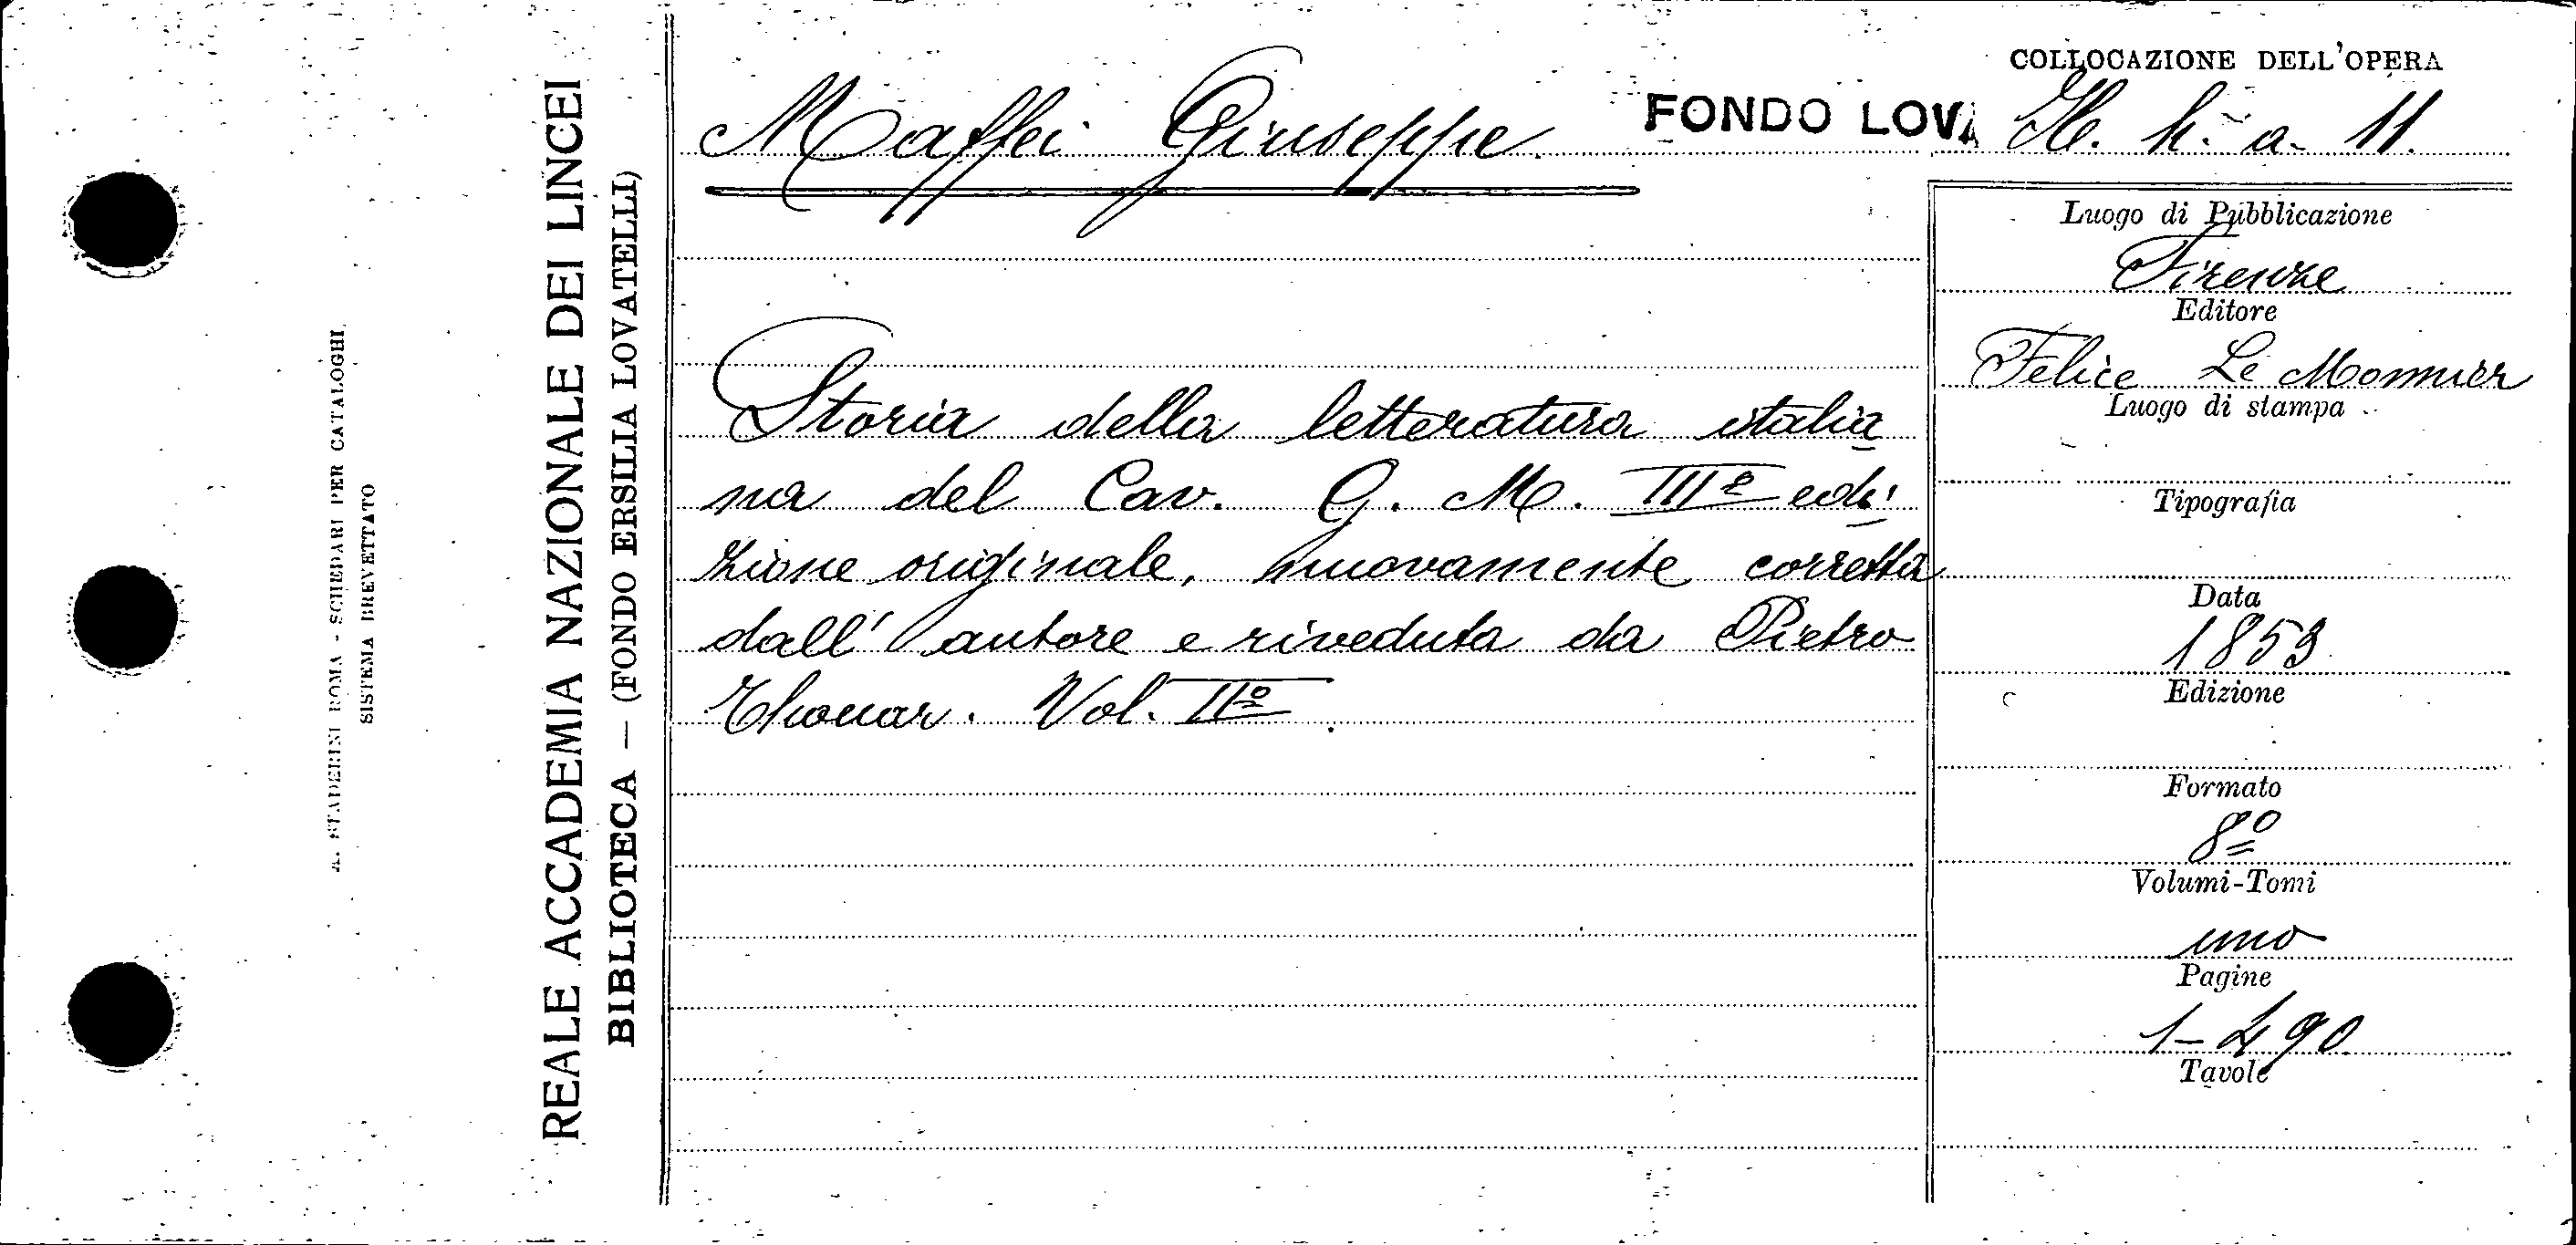 COLLOCAZIONE DELL'OPERA
Maffei Giuseppe
FONDO LOVA
h. a. 11.
Storia della letteratura italia
na del Cav. G. M. IIIª edi
zione originale, nuovamente corretta
dall' autore e riveduta da Pietro
Thouar. Vol. IIº
Luogo di Pubblicazione
Firenze
Editore
Felice Le Monnier
Luogo di stampa
Tipografia
Data
1853
Edizione
Formato
8º
Volumi-Tomi
uno
Pagine
1-490
Tavole
REALE ACCADEMIA NAZIONALE DEI LINCEI
BIBLIOTECA — (FONDO ERSILIA LOVATELLI)
A. STADERINI ROMA - SCHEDARI PER CATALOGHI
SISTEMA BREVETTATO